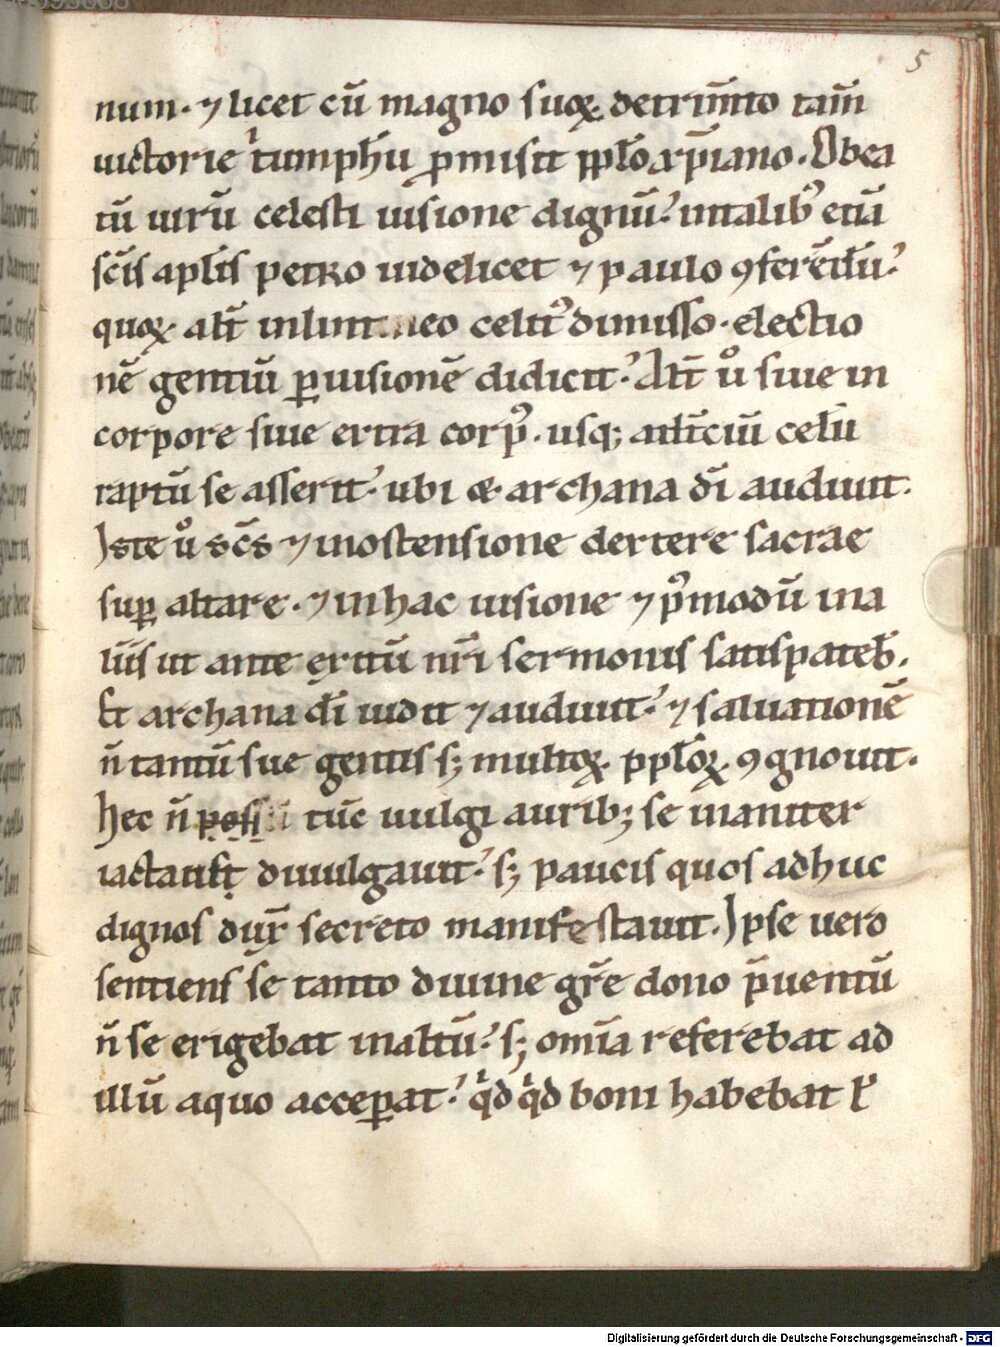 5
num· ⁊ licet cū magno suoꝝ· detrim̄to tam̄
uictorie tͥumphū ꝓmisit pplo xp̄iano· O bea
tū uirū celesti uisione dignū· intalibꝰ etiā
sc̄is aplīs petro uidelicet ⁊ paulo ꝯferēdū·
quoꝝ alt̄ in celitꝰ dimisso· electio
nē gentiū ꝑ uisionē didicit· Alt̄ u̇ͦ siue in
corpore siue extra corpꝰ· usqꝫ adt̄ciū celū
raptū se asserit· ubi & archana dī audiuit·
Iste uͦ sc̄s ⁊ inostensione dextere sacrae
suꝑ altare· ⁊ in hac uisione ⁊ pꝰmodū in a
liis ut ante exitū nr̄i sermonis satis patebit·
Et archana dī uidit ⁊ audiuit· ⁊ saluationē
n̄ tantū sue gentis sꝫ multoꝝ· pploꝝ· ꝯgnouit·
Hec n̄ tūc uulgi auribꝫ se inaniter
iactanſ diuulgauit· sꝫ paucis quos adhuc
dignos dux̄ secreto manifestauit· Ipse uero
sentiens se tanto diuine gr̄e dono p̄uentū
n̄ se erigebat inaltū· sꝫ om̄ia referebat ad
illū aquo acceꝑat· qͥd qͥd boni habebat ł
Digitalisierung gefördert durch die Deutsche Forschungsgemeinschaft - DFG